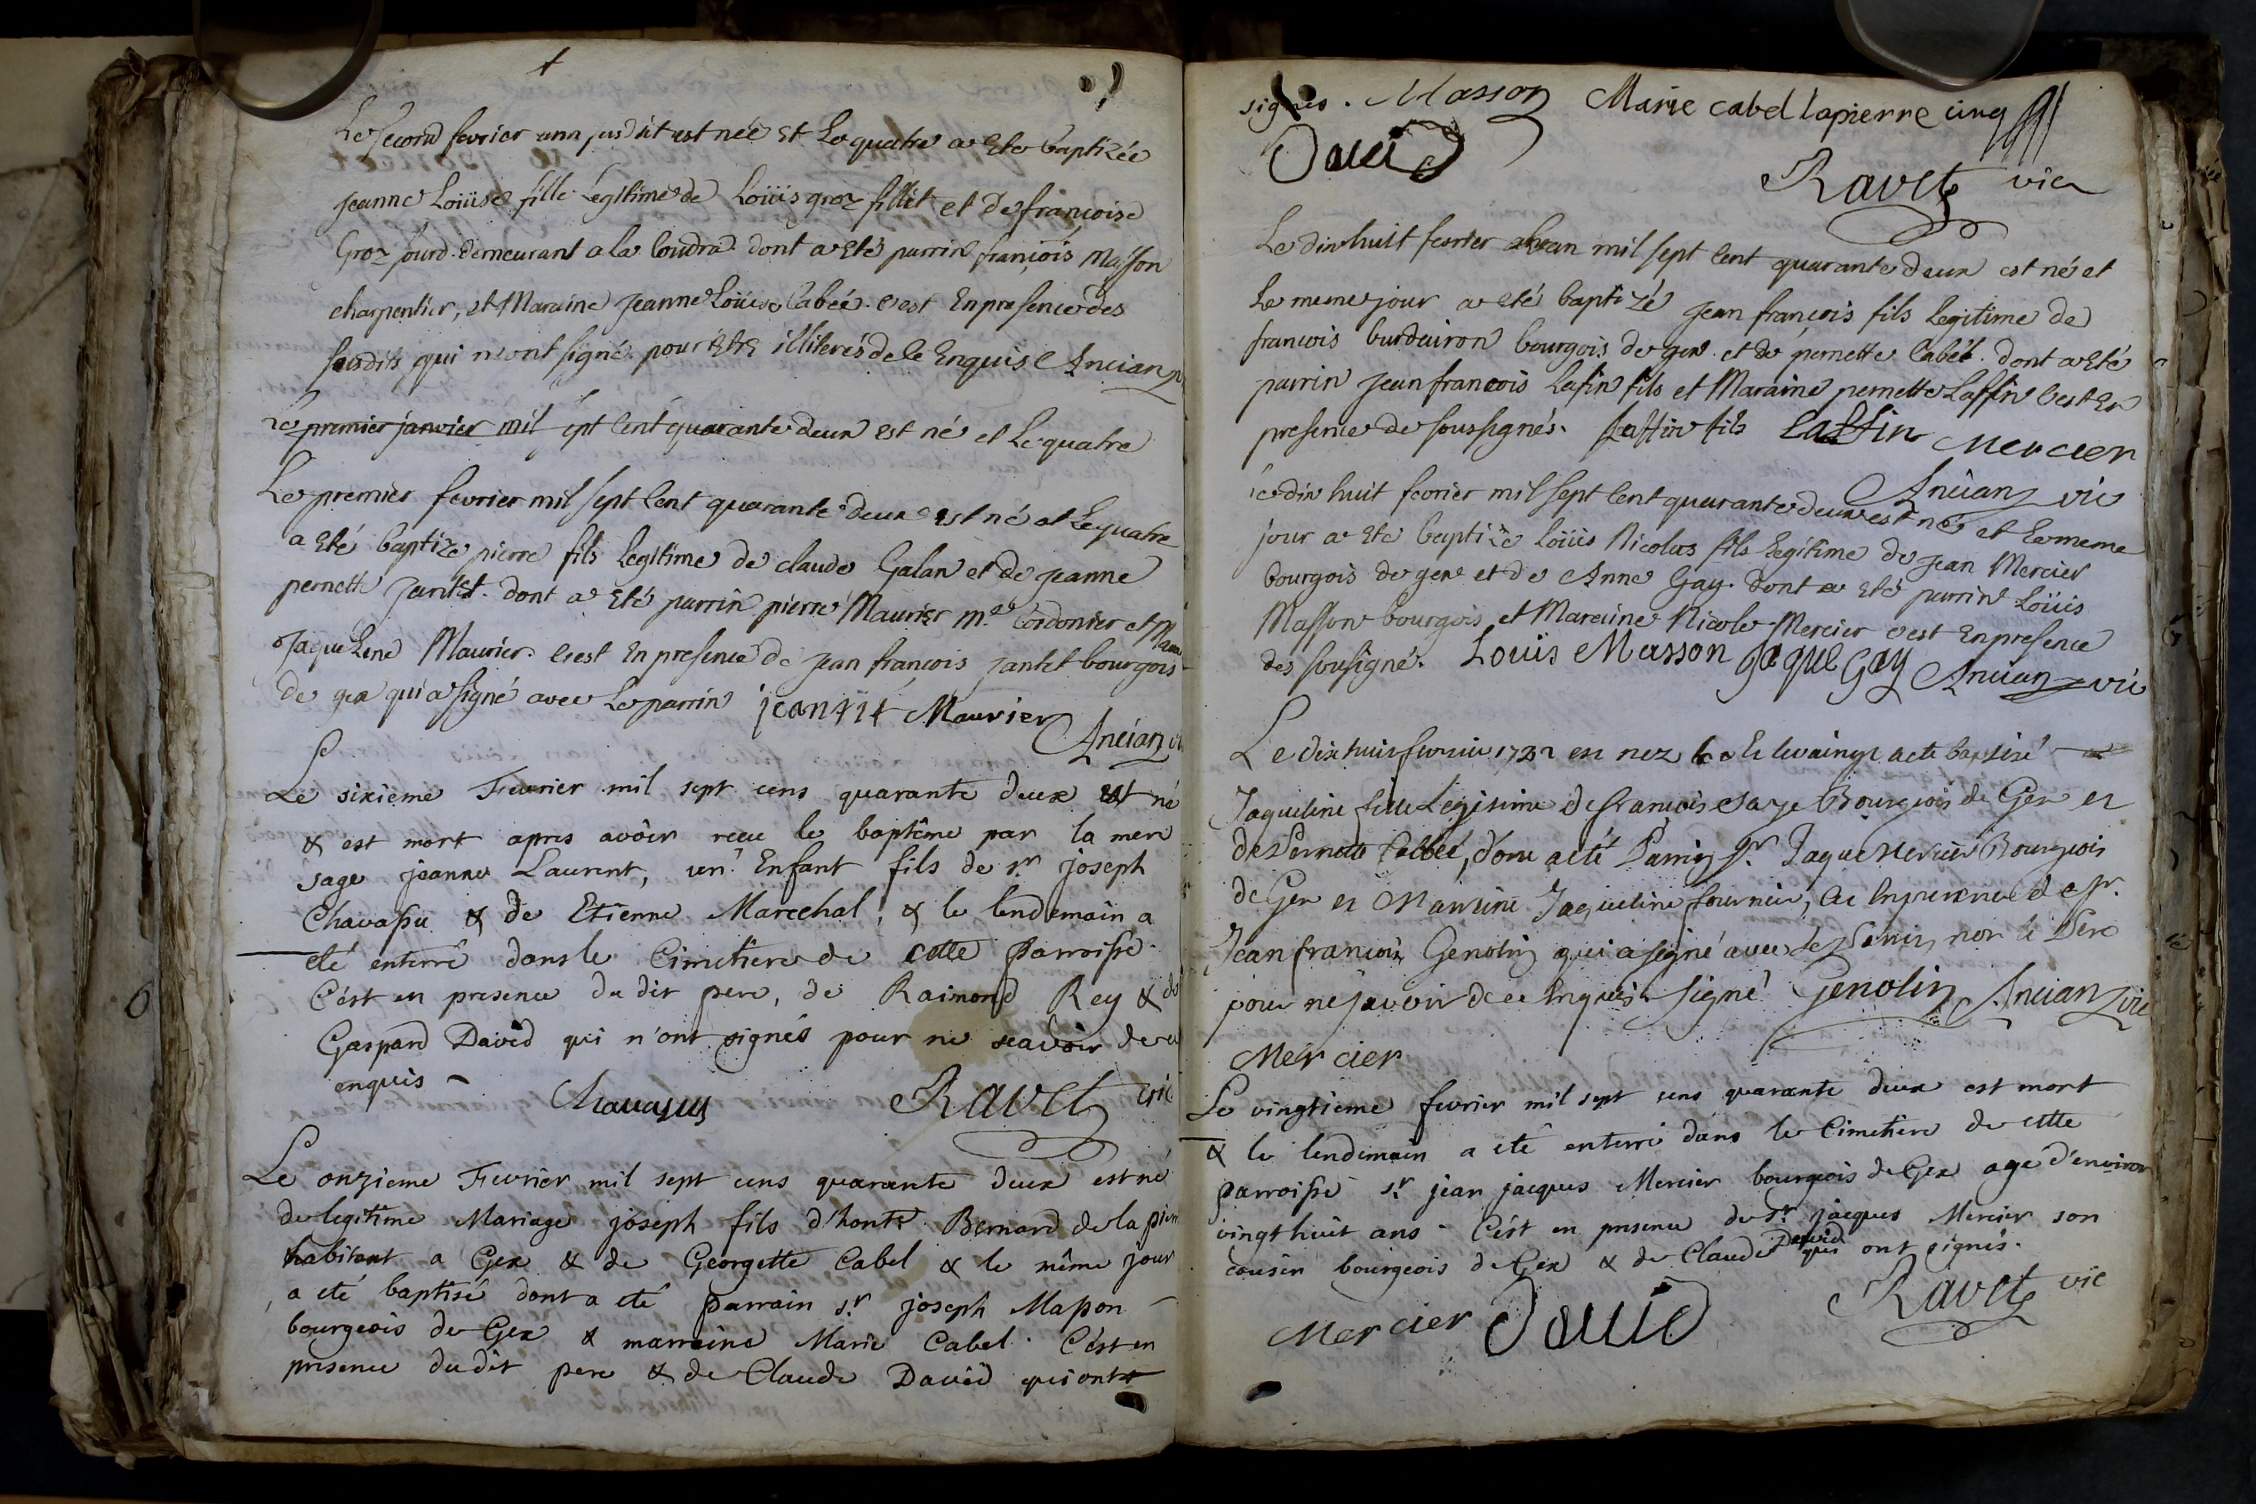 Le second fevrier ann susdit est née et le quatre a ete baptizée
jeanne Loüise fille legitime de Loüis groz fillit et de françoise
Groz jourd demeurant a la Coudra dont a eté parrin françois Masson
charpentier, et Maraine jeanne Loüise Cabée. c'est En presence des
susdits qui n'ont signé pour être illiterés de le Enquis Ancian
Le premier janvier mil sept Cent quarante deux est né et le quatre
Le premier fevrier mil sept Cent quarante deux est né et Le quatre
a eté baptizé pierre fils legitime de claude Galan et de jeanne
pernette jantet. dont a eté parrin pierre Maurier m.e Cordonier et
Jaquelene Maurier. c'est En presence de jean françois jantet bourgois
de gex qui a signé avec le parrin jeantit Maurier
Ancian
Le sixieme Fevrier mil sept cens quarante deux est né
& est mort apres avôir reçu le baptême par la mere
sage jeanne Laurent, un Enfant fils de sr joseph
Chavassu & de Etienne Marechal, & le lendemain a
eté enterré dans le Cimetiere de cette parroisse.
C'ést en presence du dit pere, de Raimond Rey & de
Gaspard David qui n'ont signés pour ne scavoir de ce
enquis - Chavassus Ravet vic
Le onzieme Fevrier mil sept cens quarante deux est né
de legitime Mariage joseph fils d'honte Bernard de la pierre
habitant a Gex & de Georgette Cabel & le même jour
a eté baptisé dont a eté parrain sr joseph Masson
bourgeois de Gex & marraine Marie Cabel. C'ést en
presence du dit pere & de Claude David qui ont
signés. Masson Marie cabel lapierre
David
Ravet vic
Le dix huit fevrier mil sept Cent quarante deux est né et
Le meme jour a eté baptizé jean françois fils legitime de
francois burdairon bourgois de gex et de pernette Cabée. dont a eté
parrin jean francois Lafin fils et Maraine pernette Laffin C'est En
presence de soussignés. Laffin fils Laffin Mercier
Ancian vic
Le dix huit fevrier mil sept Cent quarante deux est né et Le meme
jour a ete baptizé Loüis Nicolas fils legitime de jean Mercier
bourgois de gex et de Anne Gay. dont a eté parrin Loüis
Masson bourgois et Maraine Nicole Mercier c'est En presence
des sousigné. Loüis Masson jaque Gay Ancian vic
Le dix huit fevrier 1742 est nez et le vaingt a ete baptisé
Jaqueline fille Legitime de françois saye Bourgeois de Gex et
de Pernette Cabbée, dont a eté Parrin sr. Jaque Mercier Bourgeois
de Gex et Marraine Jaqueline fournier, C'e En presence de sr.
Jean francois Genolin qui a signé avec Le Parrin, non le Pere
pour ne sçavoir de ce Enquis. Signé Genolin Ancian vic
Mercier
Le vingtieme fevrier mil sept cens quarante deux est mort
& le lendemain a eté enterré dans le Cimetiere de cette
parroisse sr jean jacques Mercier bourgeois de Gex agé d'environ
vingt huit ans - C'ést en presence de sr jacques Mercier son
cousin bourgeois de Gex & de Claude David qui ont signés.
Mercier David Ravet vic